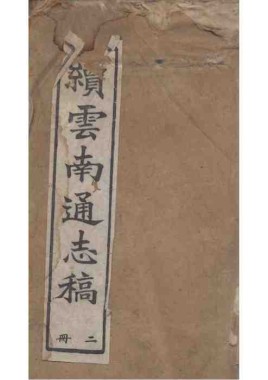 續雲南通志稿
二冊